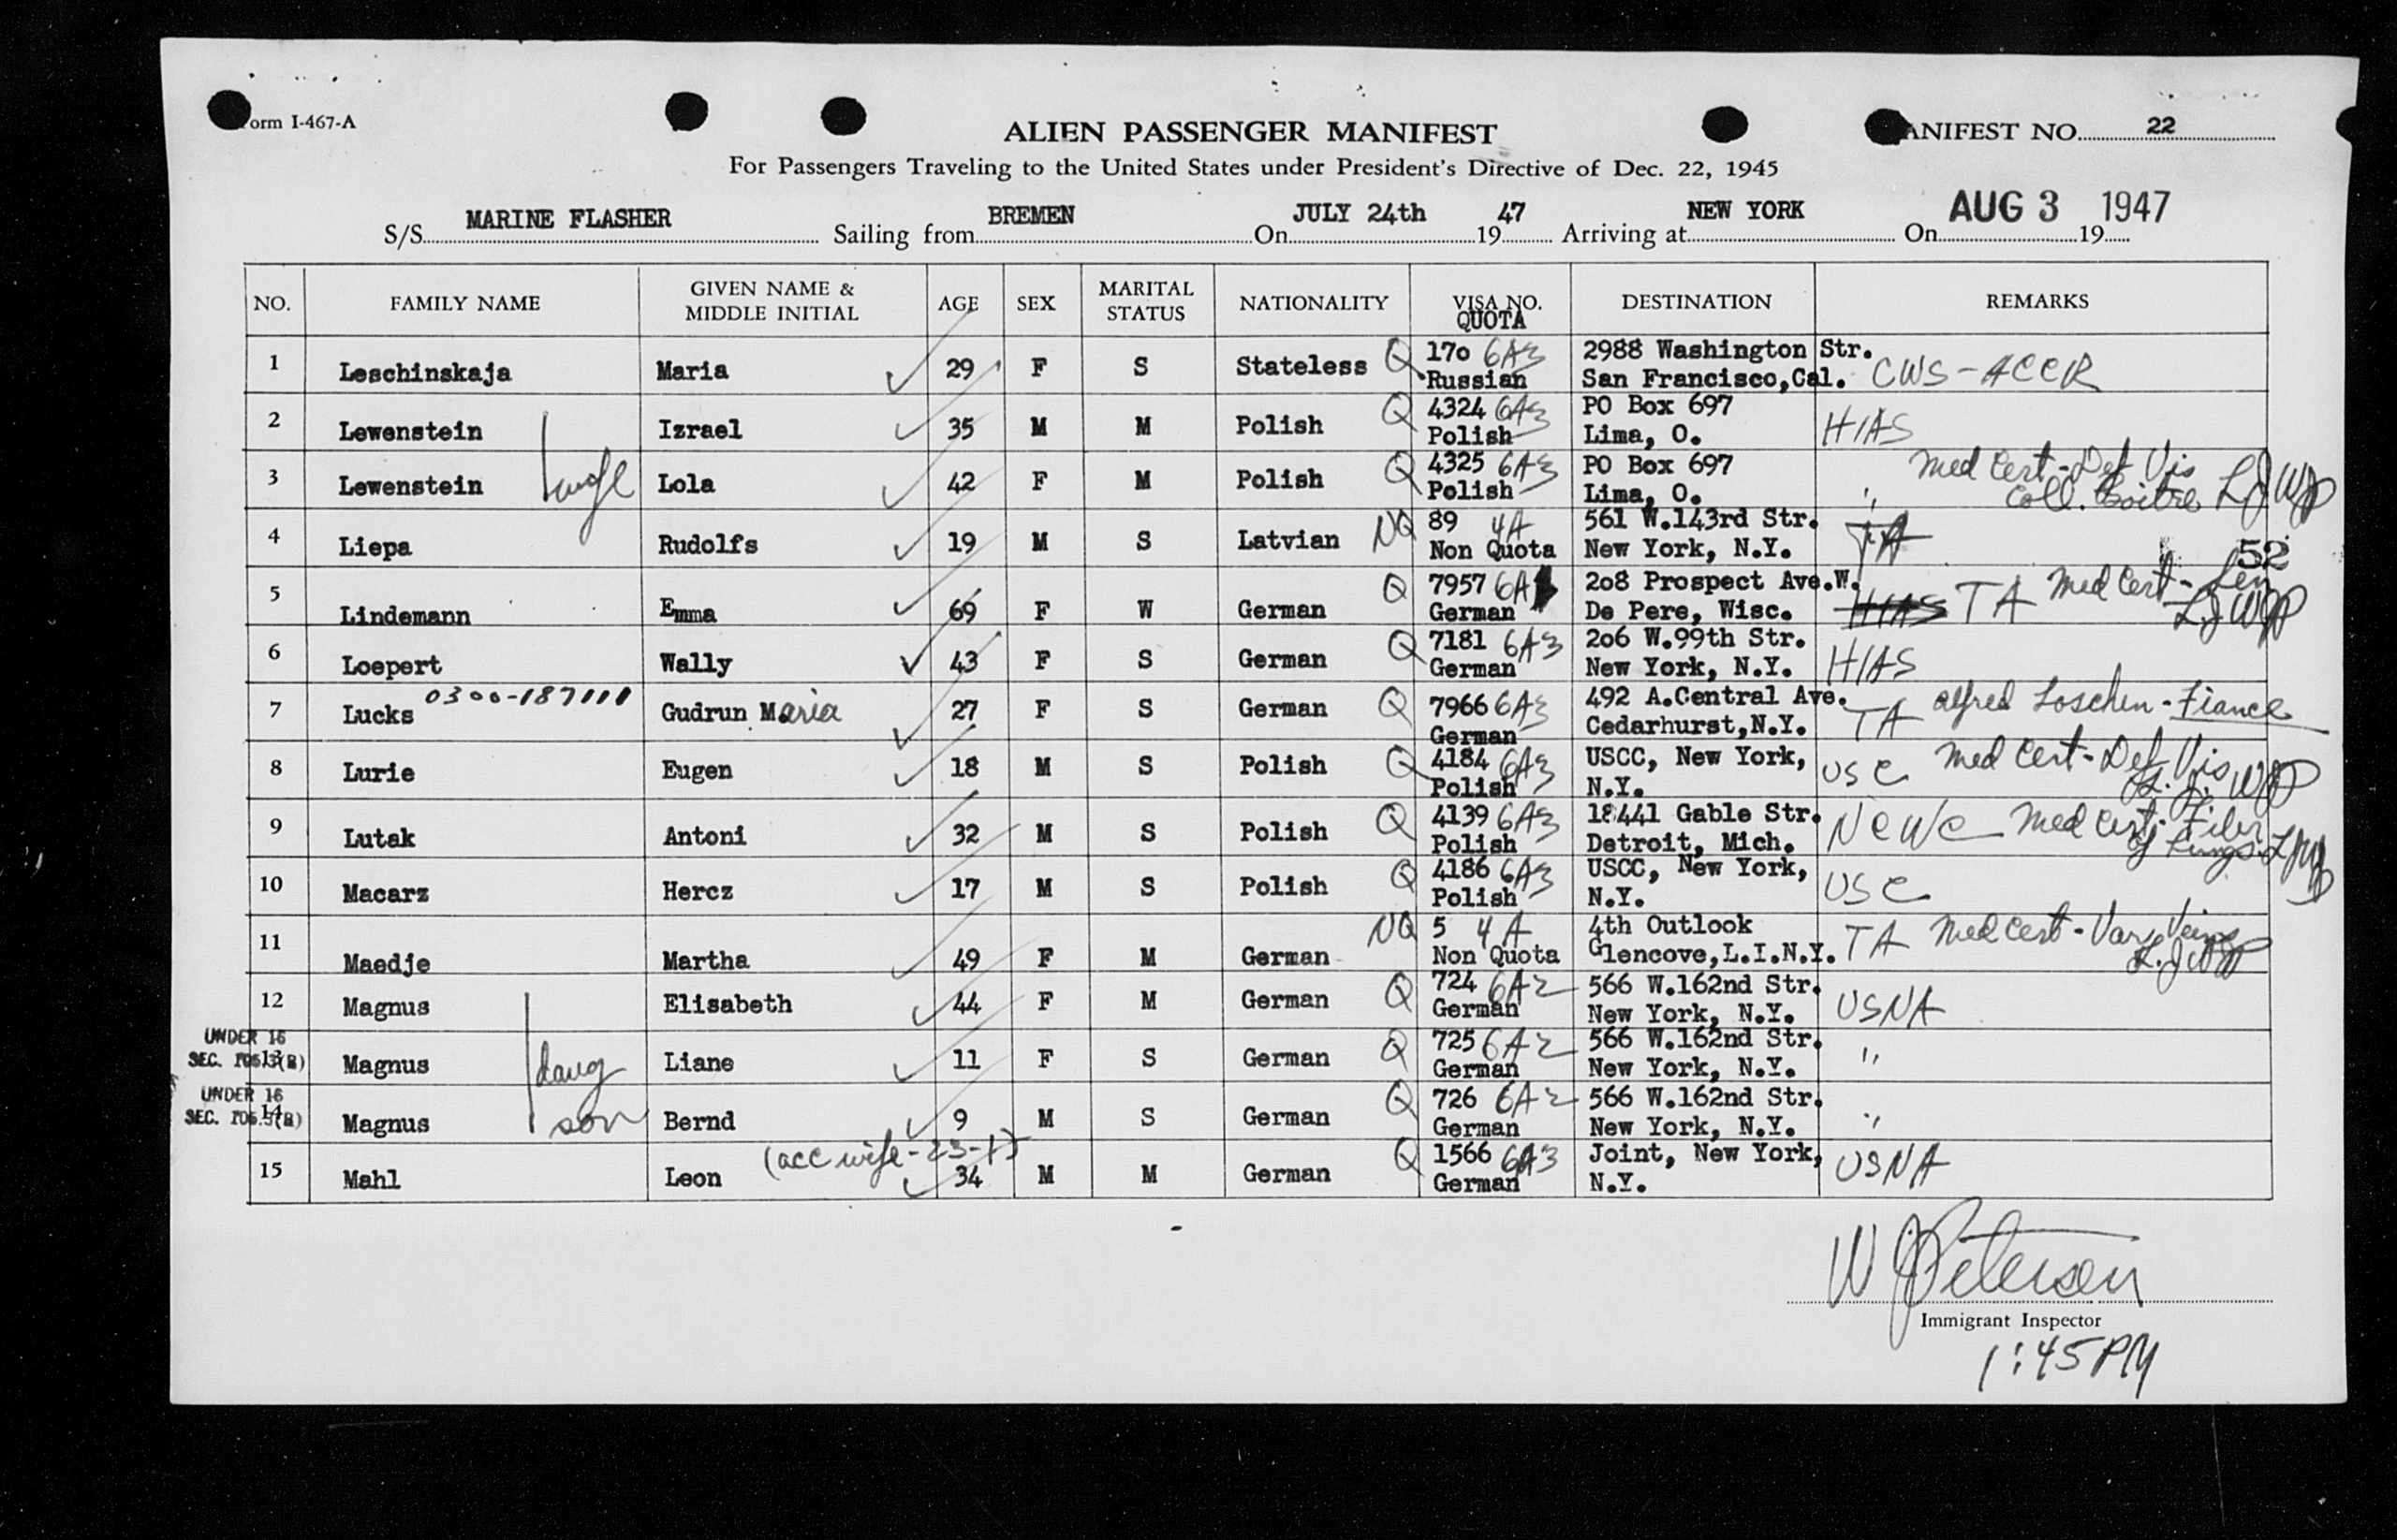 Form I-467-A
ALIEN PASSENGER MANIFEST
MANIFEST NO. 22
For Passengers Traveling to the United States under President's Directive of Dec. 22, 1945
S/S MARINE FLASHER Sailing from BREMEN On JULY 24th 19 47 Arriving at NEW YORK On AUG 3 1947 19
NO. FAMILY NAME GIVEN NAME & MIDDLE INITIAL AGE SEX MARITAL STATUS NATIONALITY VISA NO. QUOTA DESTINATION REMARKS
1 Leschinskaja Maria 29 F S Stateless Q 170 6A3 Russian 2988 Washington Str. San Francisco,Cal. CWS-ACCR
2 Lewenstein Izrael 35 M M Polish Q 4324 6A3 Polish PO Box 697 Lima, O. HIAS
3 Lewenstein wife Lola 42 F M Polish Q 4325 6A3 Polish PO Box 697 Lima, O. " Med Cert-Def Vis Coll. Goitre
4 Liepa Rudolfs 19 M S Latvian NQ 89 4A Non Quota 561 W.143rd Str. New York, N.Y. TA
52
5 Lindemann Emma 69 F W German Q 7957 6A German 208 Prospect Ave.W. De Pere, Wisc. HIAS TA Med Cert- Sen
6 Loepert Wally 43 F S German Q 7181 6A3 German 206 W.99th Str. New York, N.Y. HIAS
7 Lucks 0300-187111 Gudrun Maria 27 F S German Q 7966 6A3 German 492 A.Central Ave. Cedarhurst,N.Y. TA Alfred Loschen-Fiance
8 Lurie Eugen 18 M S Polish Q 4184 6A3 Polish USCC, New York, N.Y. USC Med Cert-Def Vis
9 Lutak Antoni 32 M S Polish Q 4139 6A3 Polish 18441 Gable Str. Detroit, Mich. NCWC Med Cert- of Lungs
10 Macarz Hercz 17 M S Polish Q 4186 6A3 Polish USCC, New York, N.Y. USC
11 Maedje Martha 49 F M German NQ 5 4A Non Quota 4th Outlook Glencove,L.I.N.Y. TA Med Cert-Var Veins
12 Magnus Elisabeth 44 F M German Q 724 6A2 German 566 W.162nd Str. New York, N.Y. USNA
UNDER 16
SEC. 106.3(B)
13 Magnus daug Liane 11 F S German Q 725 6A2 German 566 W.162nd Str. New York, N.Y. "
UNDER 16
SEC. 106.3(B)
14 Magnus son Bernd 9 M S German Q 726 6A2 German 566 W.162nd Str. New York, N.Y. "
15 Mahl Leon (acc wife-23-1) 34 M M German Q 1566 6A3 German Joint, New York, N.Y. USNA
W J Petersen
Immigrant Inspector
1:45 PM